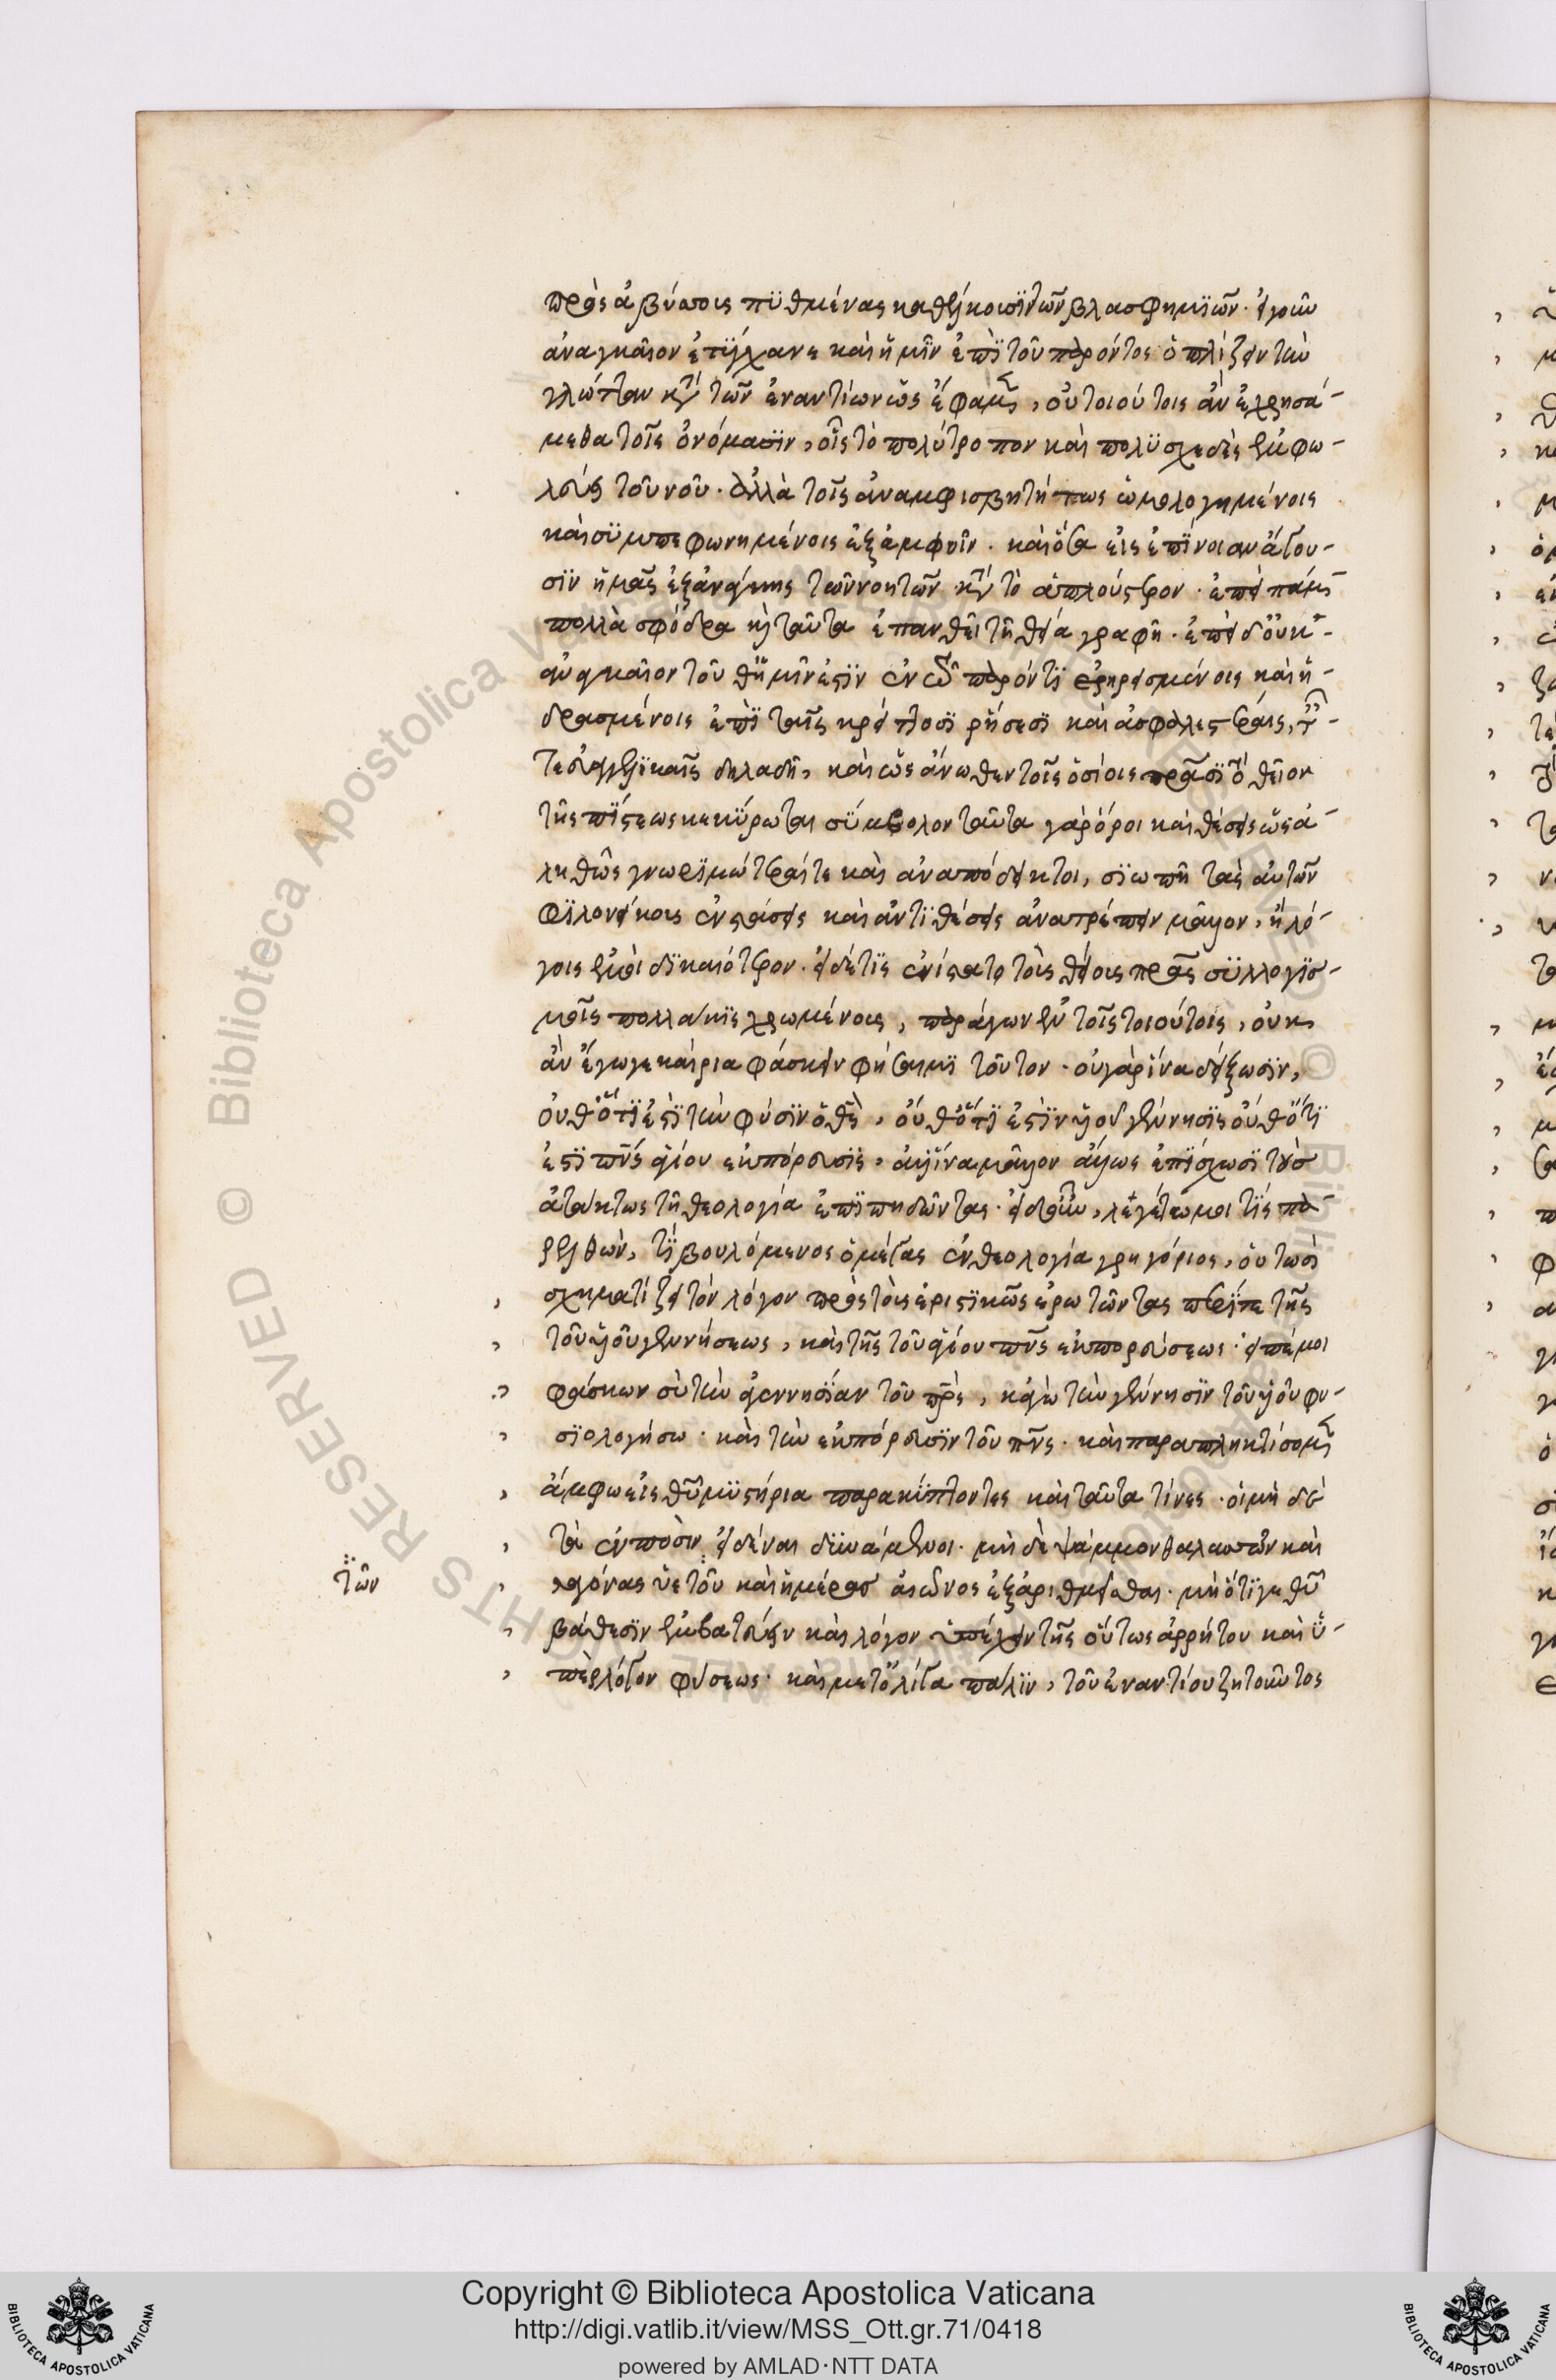 πρὸς ἀβύσσοις πϋθμένας καθήκοισϊ τῶν βλασφημϊῶν· εἰ γοῦν
ἀναγκαῖον ἐτύγχανε καὶ ἡμῖν ἐπὶ τοῦ παρόντος ὁπλίζειν τὴν
γλῶτταν κατὰ τῶν ἐναντίων ὡς ἔφαμεν, οὐ τοιούτοις ἂν ἐχρησά-
μεθα τοῖς ὀνόμασϊν, οἷς τὸ πολύτροπον καὶ πολϋσχεδὲς ἐμφω-
λεύει τοῦ νοῦ· ἀλλὰ τοῖς ἀναμφισβητήτως ὡμολογημένοις
καὶ σϋμπεφωνημένοις ἐξ ἀμφοῖν· καὶ ὅσα εἰς ἐπίνοιαν ἄγου-
σϊν ἡμᾶς ἐξ ἀνάγκης τῶν νοητῶν κατὰ τὸ ἁπλούστερον· ἐπεὶ
πολλὰ σφόδρα καὶ ταῦτα ἐπανθεῖ τῇ θεία γραφῇ· ἐπεὶ δ' οὐκ
ἀναγκαῖον τοῦθ' ἡμῖν ἐστϊν ἐν τῷ παρόντϊ ἐρηρεισμένοις καὶ ἡ-
δρασμένοις ἐπὶ ταῖς κρείττοσϊ ῥήσεσϊ καὶ ἀσφαλεστέραις, ταῖς
τε εὐαγγελϊκαῖς δηλαδή, καὶ ὡς ἄνωθεν τοῖς ὁσίοις πατράσϊ τὸ θεῖον
τῆς πίστεως κεκύρωται σύμβολον ταῦτα γὰρ ὅροι καὶ θέσεις ὡς ἀ-
ληθῶς γνωρϊμώτεραί τε καὶ ἀναπόδεικτοι, σϊωπῇ τὰς αὐτῶν
φϊλονείκοις ἐνστάσεις καὶ ἀντϊθέσεις ἀνατρέπειν μᾶλλον, ἢ λό-
γοις ἐμοὶ δϊκαιότερον· εἰ δέ τις ἐνίστατο τοῖς θείοις πατράσϊ σϋλλογϊσ-
μοῖς πολλάκϊς χρωμένοις, παράγων ἐν τοῖς τοιούτοις, οὐκ
ἂν ἔγωγε καίρια φάσκειν φήσαιμϊ τοῦτον· οὐ γὰρ ἵνα δείξωσϊν,
οὔθ' ὅτϊ ἐστὶ τὴν φύσϊν ὁ θεός, οὔθ' ὅτϊ ἐστὶν υἱοῦ γέννησϊς οὔθ' ὅτϊ
ἐστὶ πνεύματος ἁγίου ἐκπόρευσϊς, ἀλλ' ἵνα μᾶλλον ἄλλως ἐπίσχωσϊ τοὺσ
ἀτάκτως τῇ θεολογία ἐπϊπηδῶντας· εἰ δ' οὖν, λεγέτω μοι τὶς πα-
ρελθὼν, τί βουλόμενος ὁ μέγας ἐν θεολογία γρηγόριος, οὑτωσὶ
σχηματίζει τὸν λόγον πρὸς τοὺς ἐριστϊκῶς ἐρωτῶντας περί τε τῆς
τοῦ υἱοῦ γεννήσεως, καὶ τῆς τοῦ ἁγίου πνς ἐκπορεύσεως· εἰπέ μοι
φάσκων σὺ τὴν ἀγεννησίαν τοῦ πρς, κἀγὼ τὴν γέννησϊν τοῦ υἱοῦ φυ-
σϊολογήσω· καὶ τὴν ἐκπόρευσϊν τοῦ πνς· καὶ παραπληκτίσομεν
ἄμφω εἰς θεοῦ μϋστήρια παρακύπτοντες καὶ ταῦτα τίνες· οἱ μὴ δὲ
τὰ ἐν ποσὶν εἰδέναι δϋνάμενοι· μὴ δὲ ψάμμον θαλασσῶν καὶ
σταγόνας ὑετοῦ καὶ ἡμέρασ αἰῶνος ἐξαριθμεῖσθαι· μὴ ὅτϊ γε θεοῦ
τῶν
βάθεσϊν ἐμβατεύειν καὶ λόγον ὑπέχειν τῆς οὕτως ἀρρήτου καὶ ὑ-
πὲρ λόγον φύσεως· καὶ μετ' ὀλίγα πάλϊν, τοῦ ἐναντίου ζητοῦντος
Copyright © Biblioteca Apostolica Vaticana
http://digi.vatlib.it/view/MSS_Ott.gr.71/0418
powered by AMLAD·NTT DATA
BIBLIOTECA APOSTOLICA VATICANA
BIBLIOTECA APOSTOLICA VATICANA